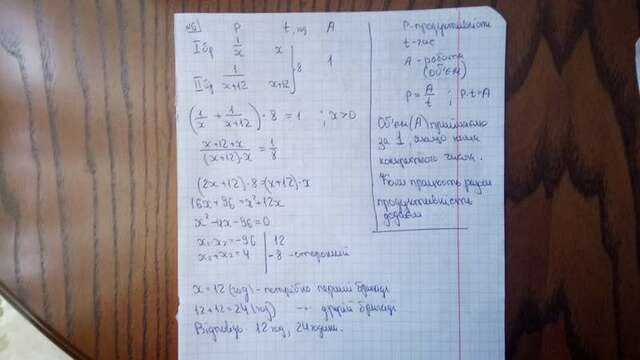 №5 P t, год A
I бр 1/x x
8 1
II бр 1/(x+12) x+12
(1/x + 1/(x+12)) · 8 = 1 ; x>0
(x+12+x)/((x+12)·x) = 1/8
(2x+12)·8=(x+12)·x
16x+96=x²+12x
x²-4x-96=0
x₁·x₂=-96 | 12
x₁+x₂=4 | -8 - сторонній
x=12 (год) - потрібно першій бригаді
12+12=24 (год) -"- другій бригаді
Відповідь 12 год, 24 години.
P-продуктивність
t-час
A - робота
(об'єм)
P = A/t ; P·t=A
Об'єм (A) приймаємо
за 1, якщо нема
конкретного числа.
Коли працюють разом
продуктивність
додаєм